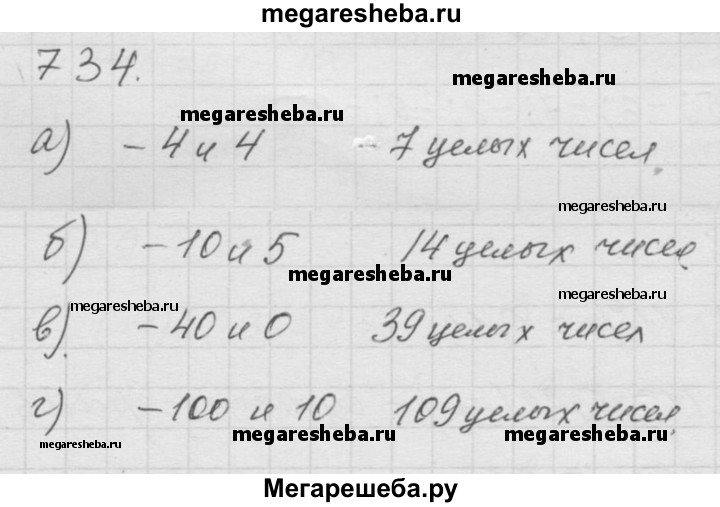 megaresheba.ru
734.
megaresheba.ru
megaresheba.ru
а) -4 и 4 - 7 целых чисел.
megaresheba.ru
б) -10 и 5 14 целых чисел
megaresheba.ru
megaresheba.ru
megaresheba.ru
в). -40 и 0 39 целых чисел
г) -100 и 10 109 целых чисел
megaresheba.ru
megaresheba.ru
megaresheba.ru
Мегарешеба.ру